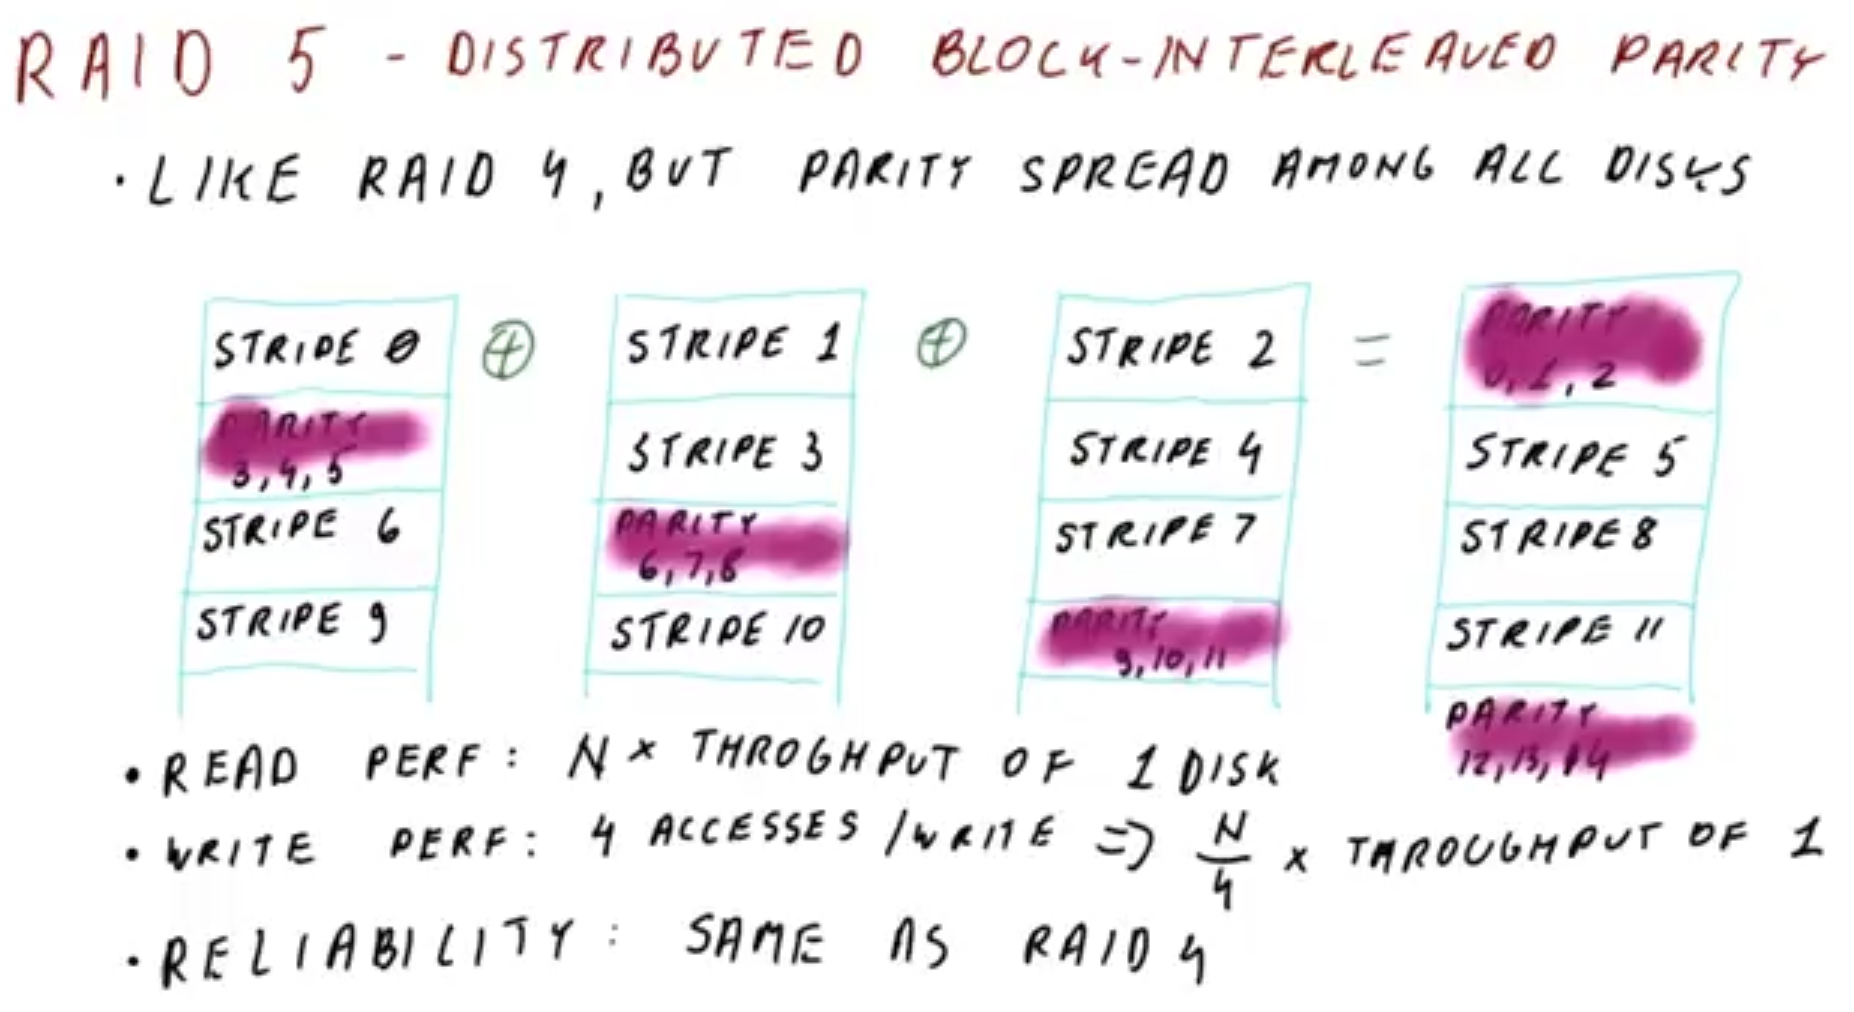 RAID 5 - DISTRIBUTED BLOCK-INTERLEAVED PARITY
• LIKE RAID 4, BUT PARITY SPREAD AMONG ALL DISKS
STRIPE 0 ⊕ STRIPE 1 ⊕ STRIPE 2 = PARITY
0, 1, 2
PARITY
3, 4, 5
STRIPE 3
STRIPE 4
STRIPE 5
STRIPE 6
PARITY
6, 7, 8
STRIPE 7
STRIPE 8
STRIPE 9
STRIPE 10
PARITY
9, 10, 11
STRIPE 11
PARITY
12, 13, 14
• READ PERF: N × THROGHPUT OF 1 DISK
• WRITE PERF: 4 ACCESSES / WRITE => N/4 × THROUGHPUT OF 1
• RELIABILITY: SAME AS RAID 4